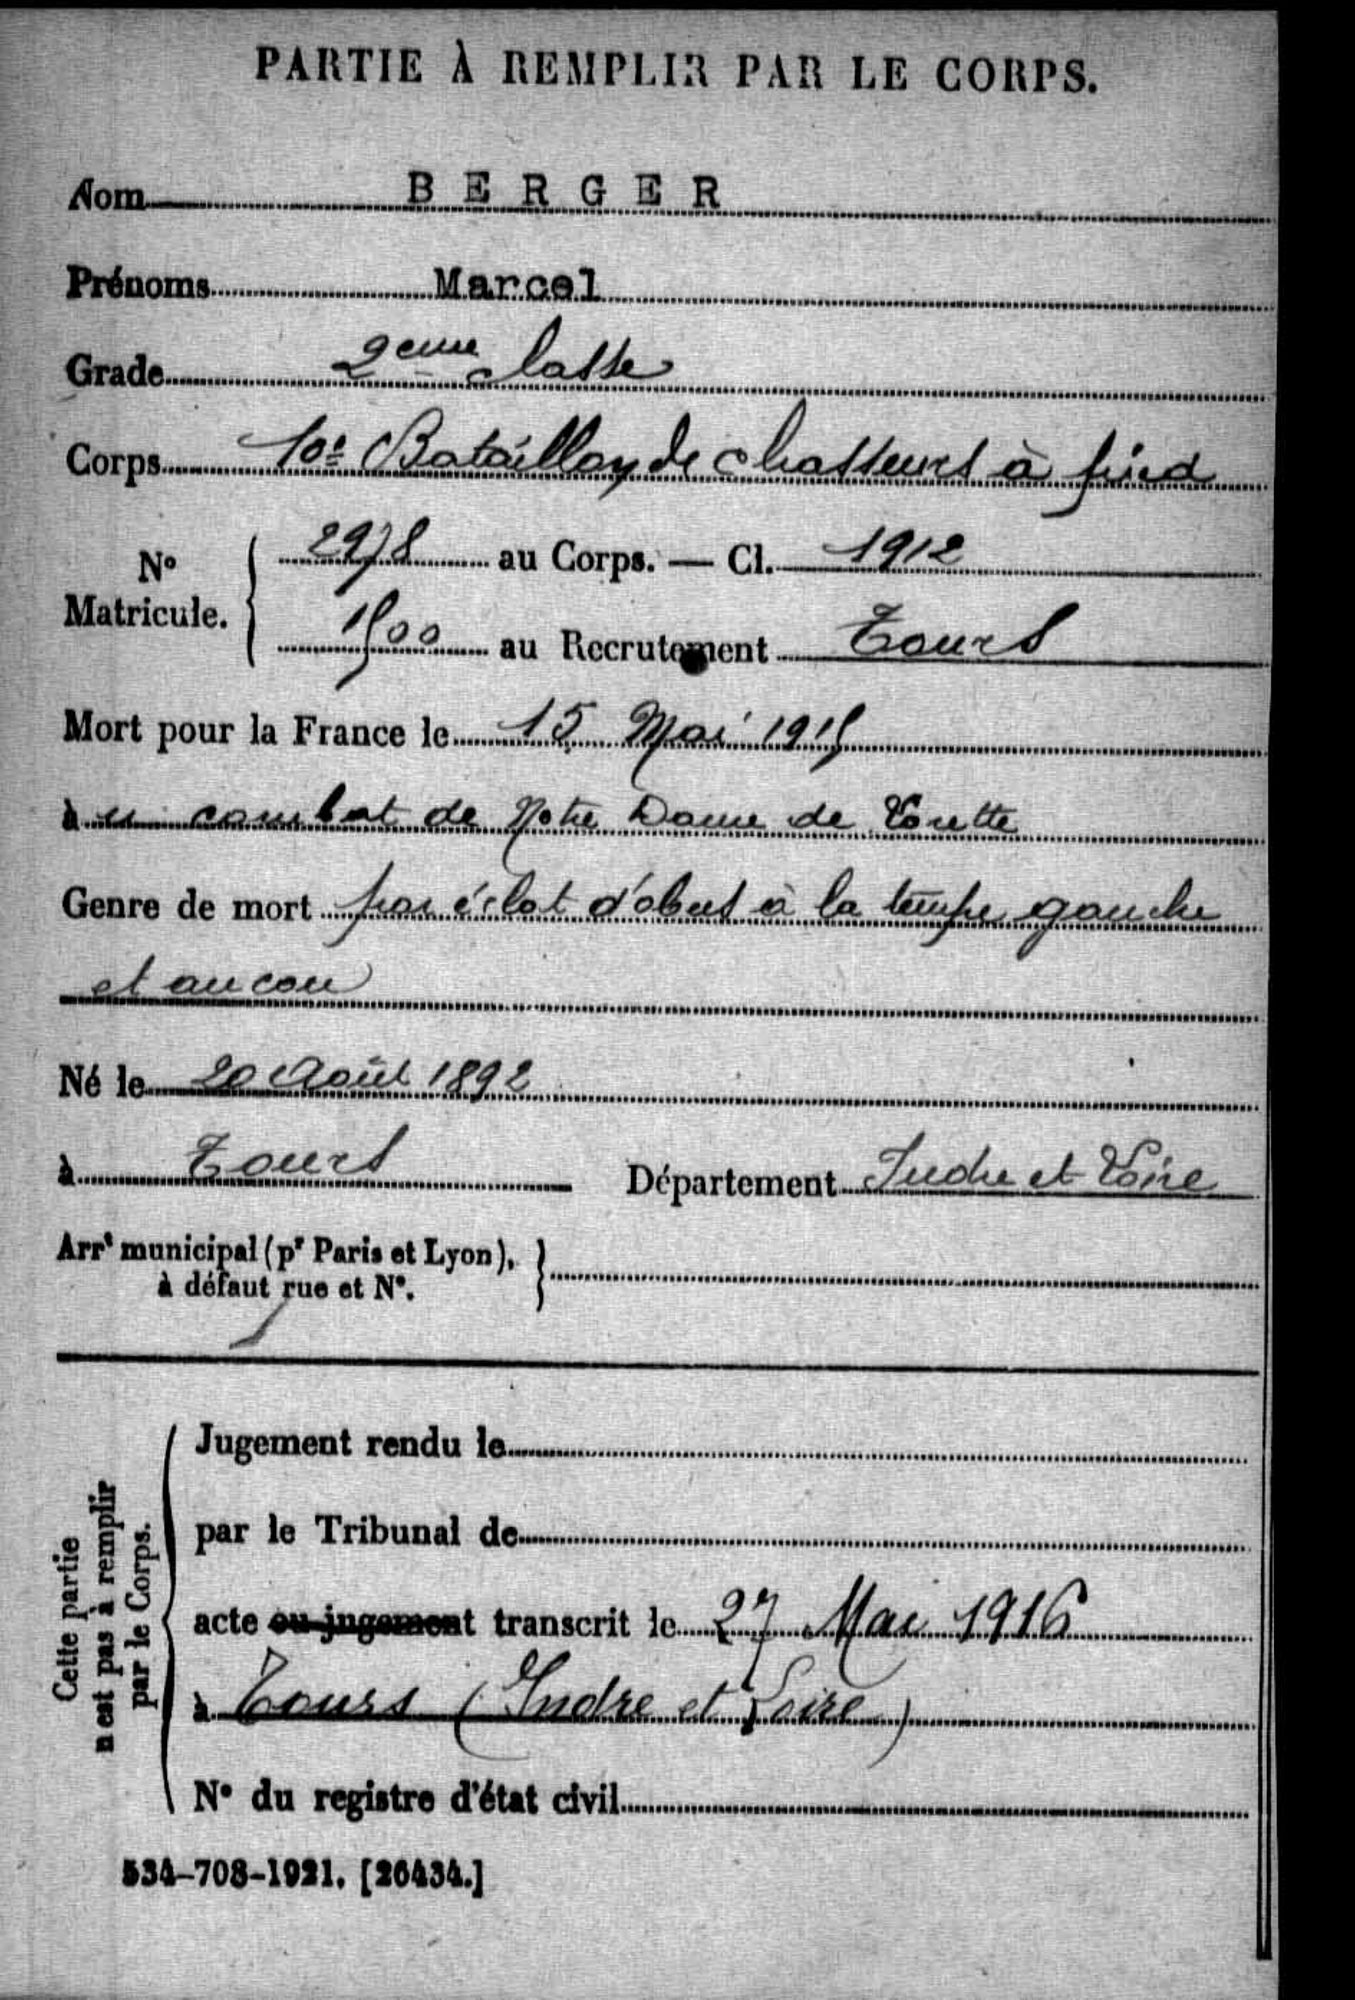 PARTIE À REMPLIR PAR LE CORPS.
Nom BERGER
Prénoms Marcel
Grade 2eme classe
Corps 10e Bataillon de chasseurs à pied
No Matricule. 2978 au Corps. — Cl. 1912
1500 au Recrutement Tours
Mort pour la France le 15 Mai 1915
à u combat de Notre Dame de Lorette
Genre de mort par éclat d'obus à la tempe gauche
et au cou
Né le 20 Août 1892
à Tours Département Indre et Loire
Arrt municipal (pr Paris et Lyon),
à défaut rue et No.
Cette partie
n'est pas à remplir
par le Corps.
Jugement rendu le
par le Tribunal de
acte ou jugement transcrit le 27 Mai 1916
à Tours (Indre et Loire)
No du registre d'état civil
534-708-1921. [26434.]